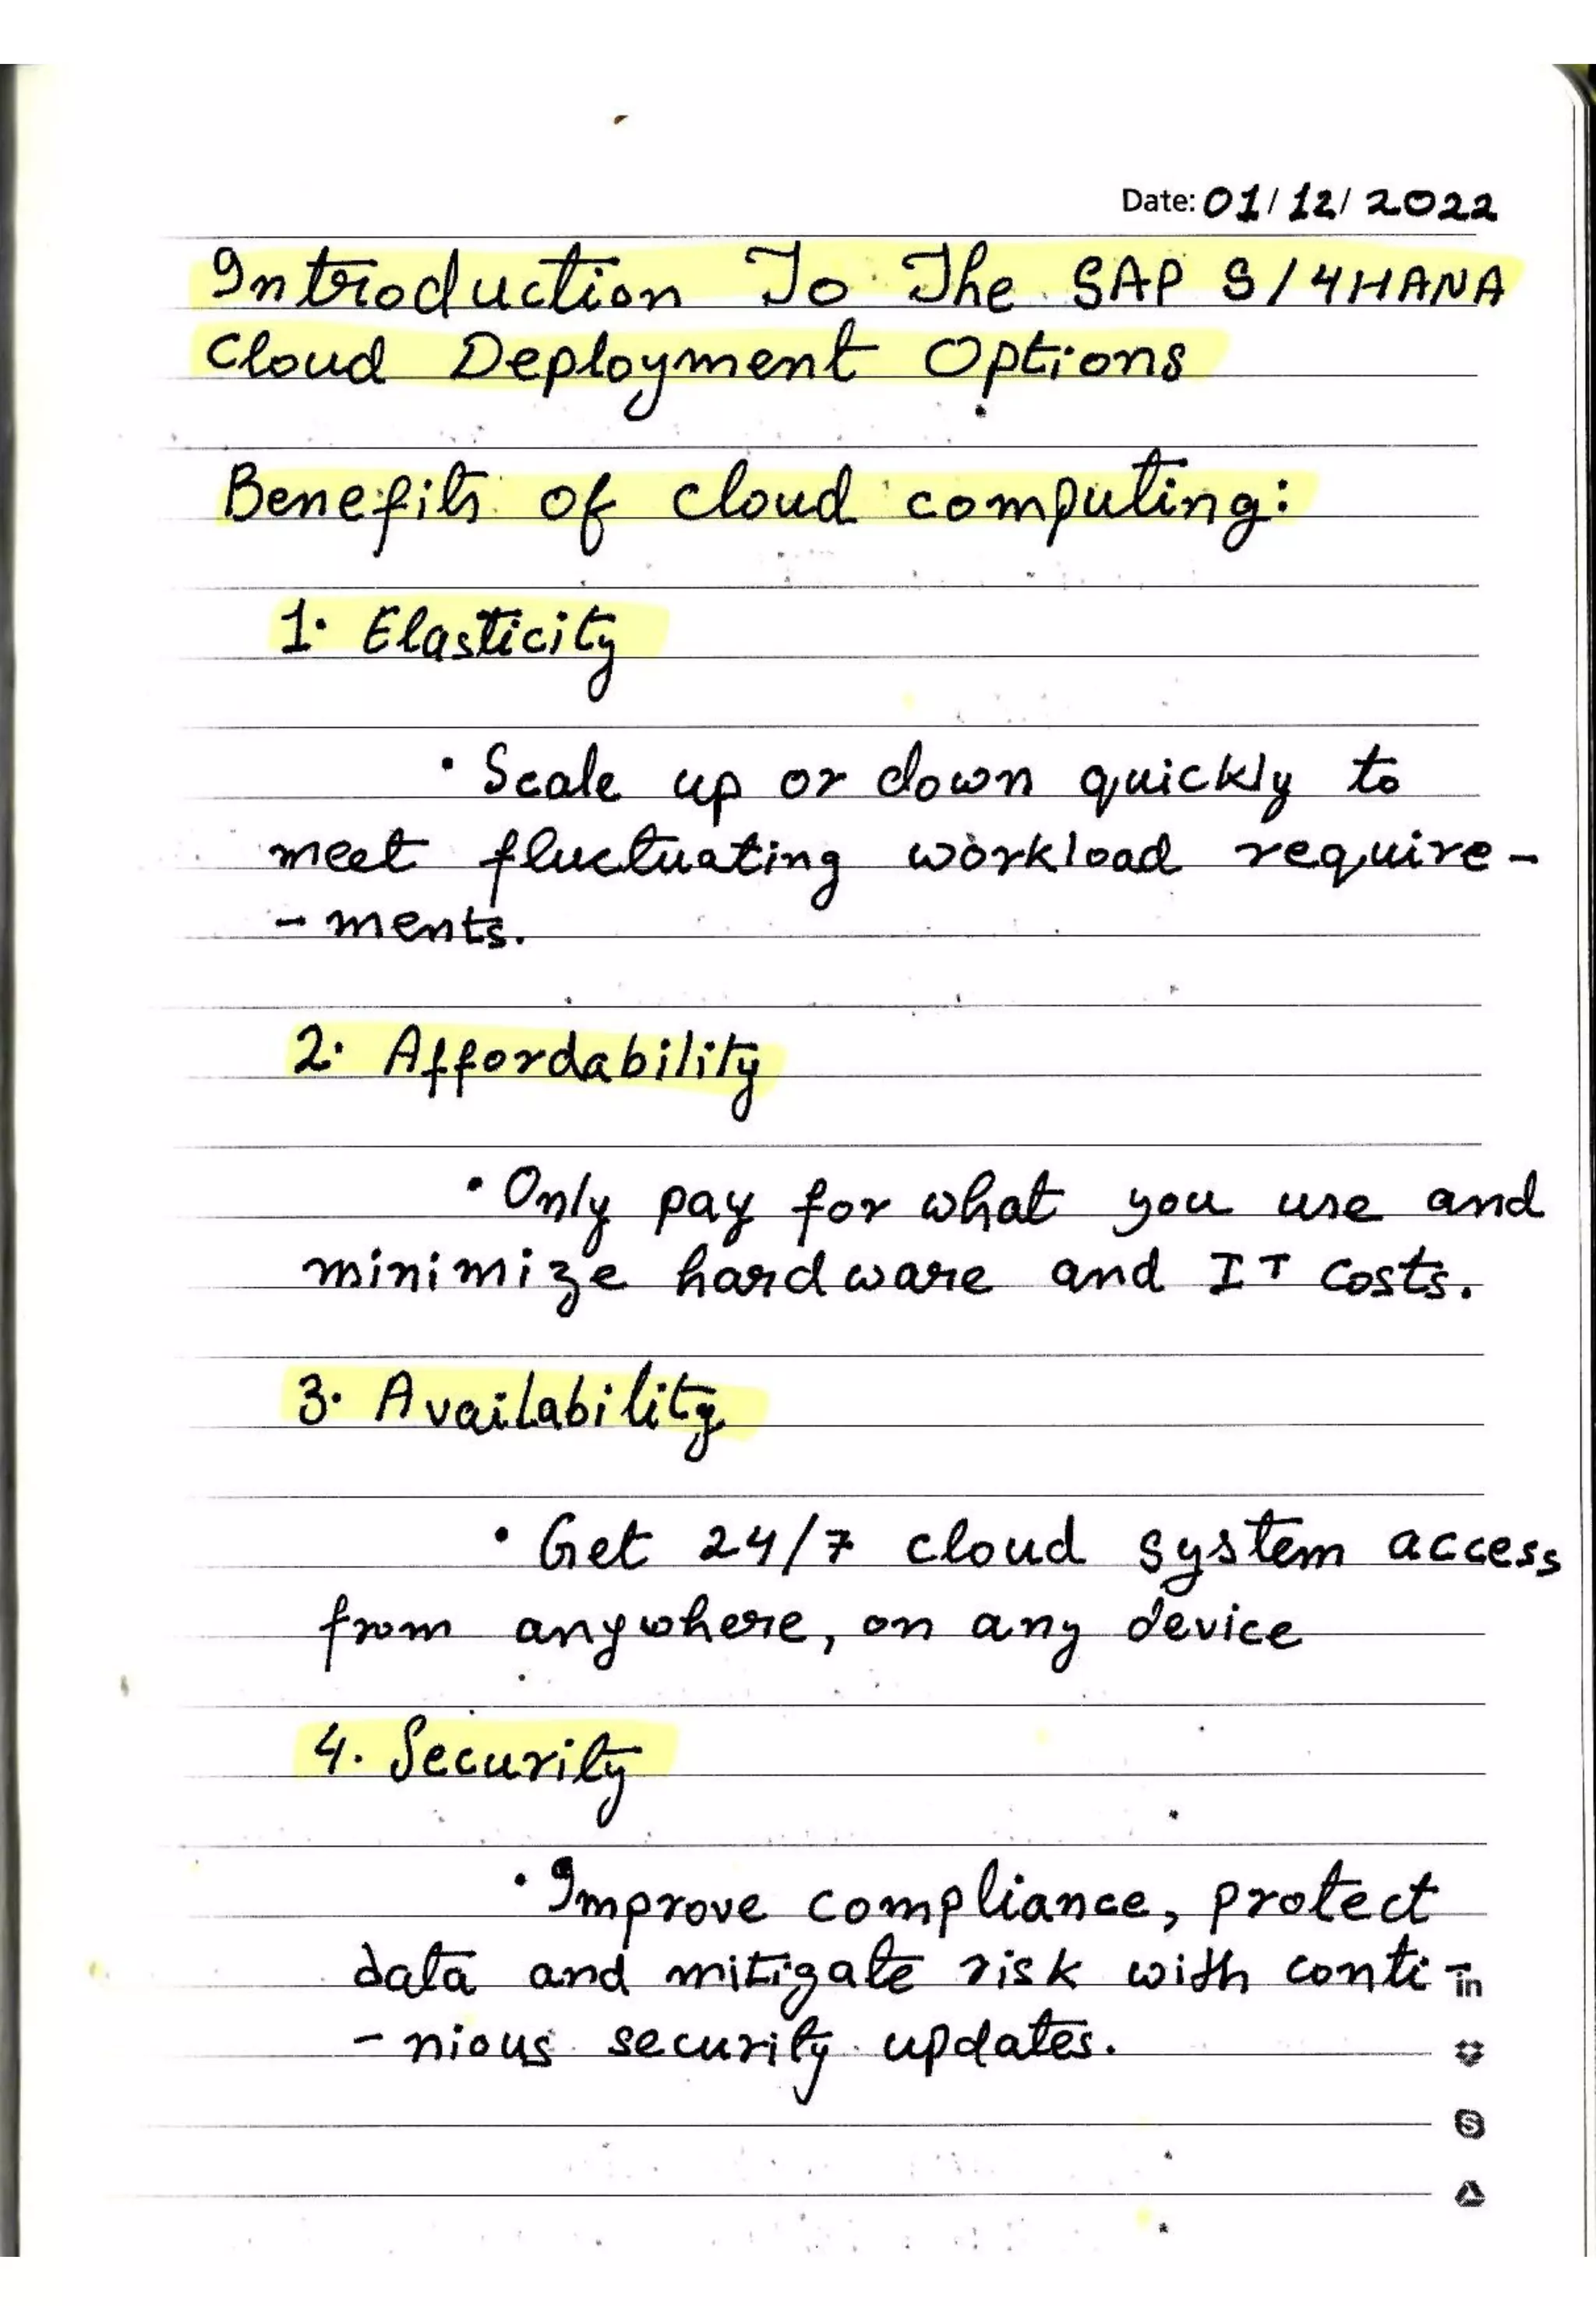 Date: 01/12/2022
Introduction To The SAP S/4HANA
Cloud Deployment Options
Benefits of cloud computing:
1. Elasticity
• Scale up or down quickly to
meet fluctuating workload require-
-ments.
2. Affordability
• Only pay for what you use and
minimize hardware and IT costs.
3. Availability
• Get 24/7 cloud system access
from anywhere, on any device
4. Security
• Improve compliance, protect
data and mitigate risk with conti-
-nious security updates.
in